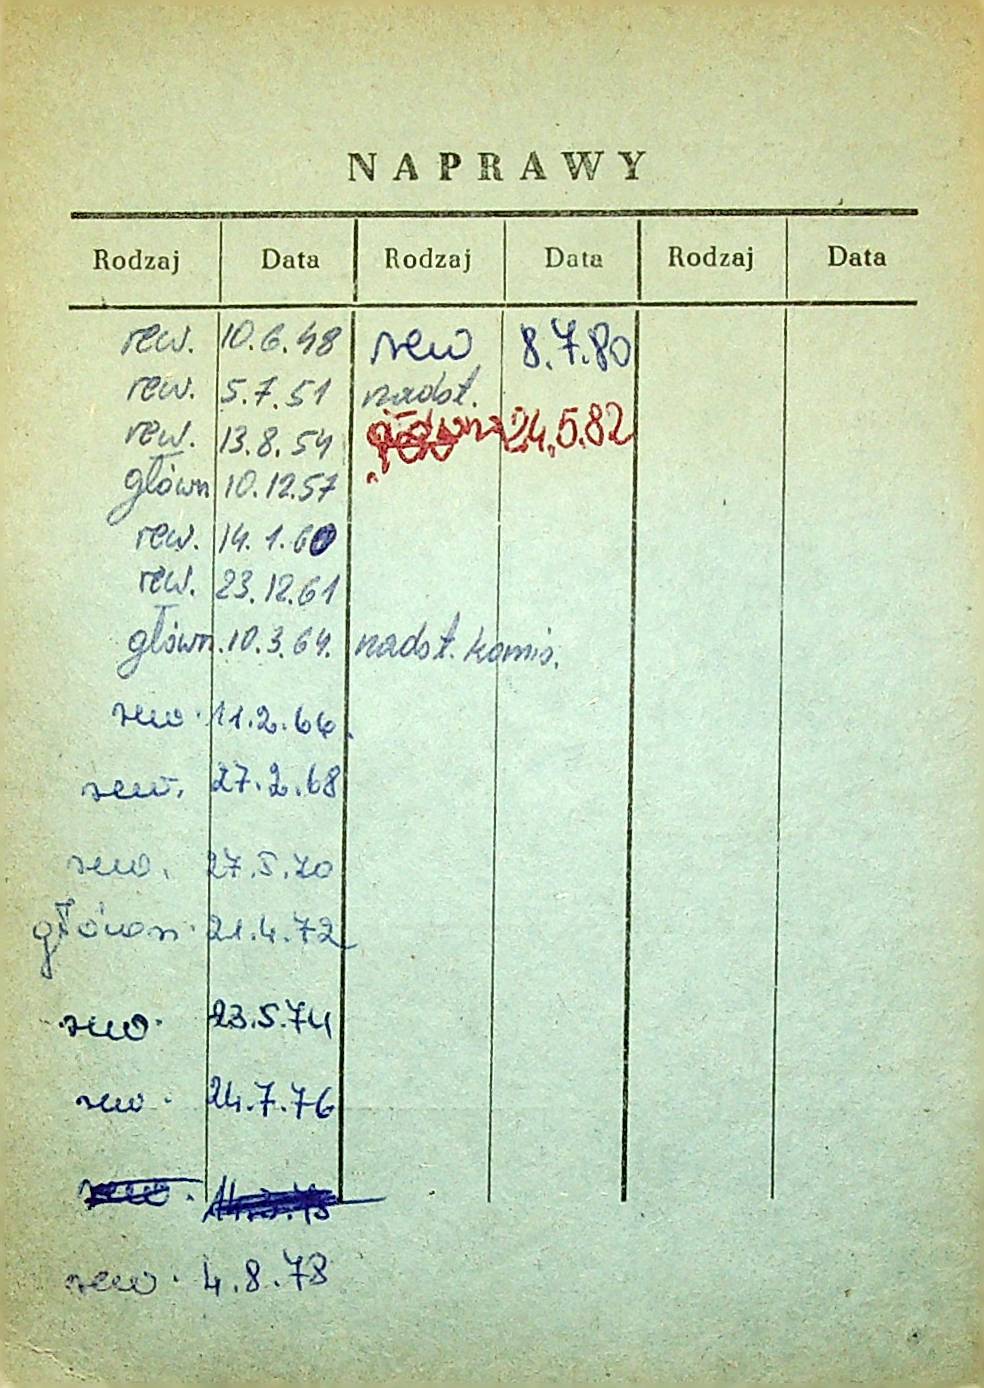 NAPRAWY
Rodzaj Data Rodzaj Data Rodzaj Data
rew. 10.6.48 rew 8.7.80
rew. 5.7.51 nadst.
rew. 13.8.54 główna 24.5.82
główn 10.12.57
rew. 14.1.60
rew. 23.12.61
główn. 10.3.64. nadst. komis.
rew. 11.2.66.
rew. 27.2.68
rew. 27.5.70
główn. 21.4.72
rew. 23.5.74
rew. 24.7.76
rew. 4.8.78